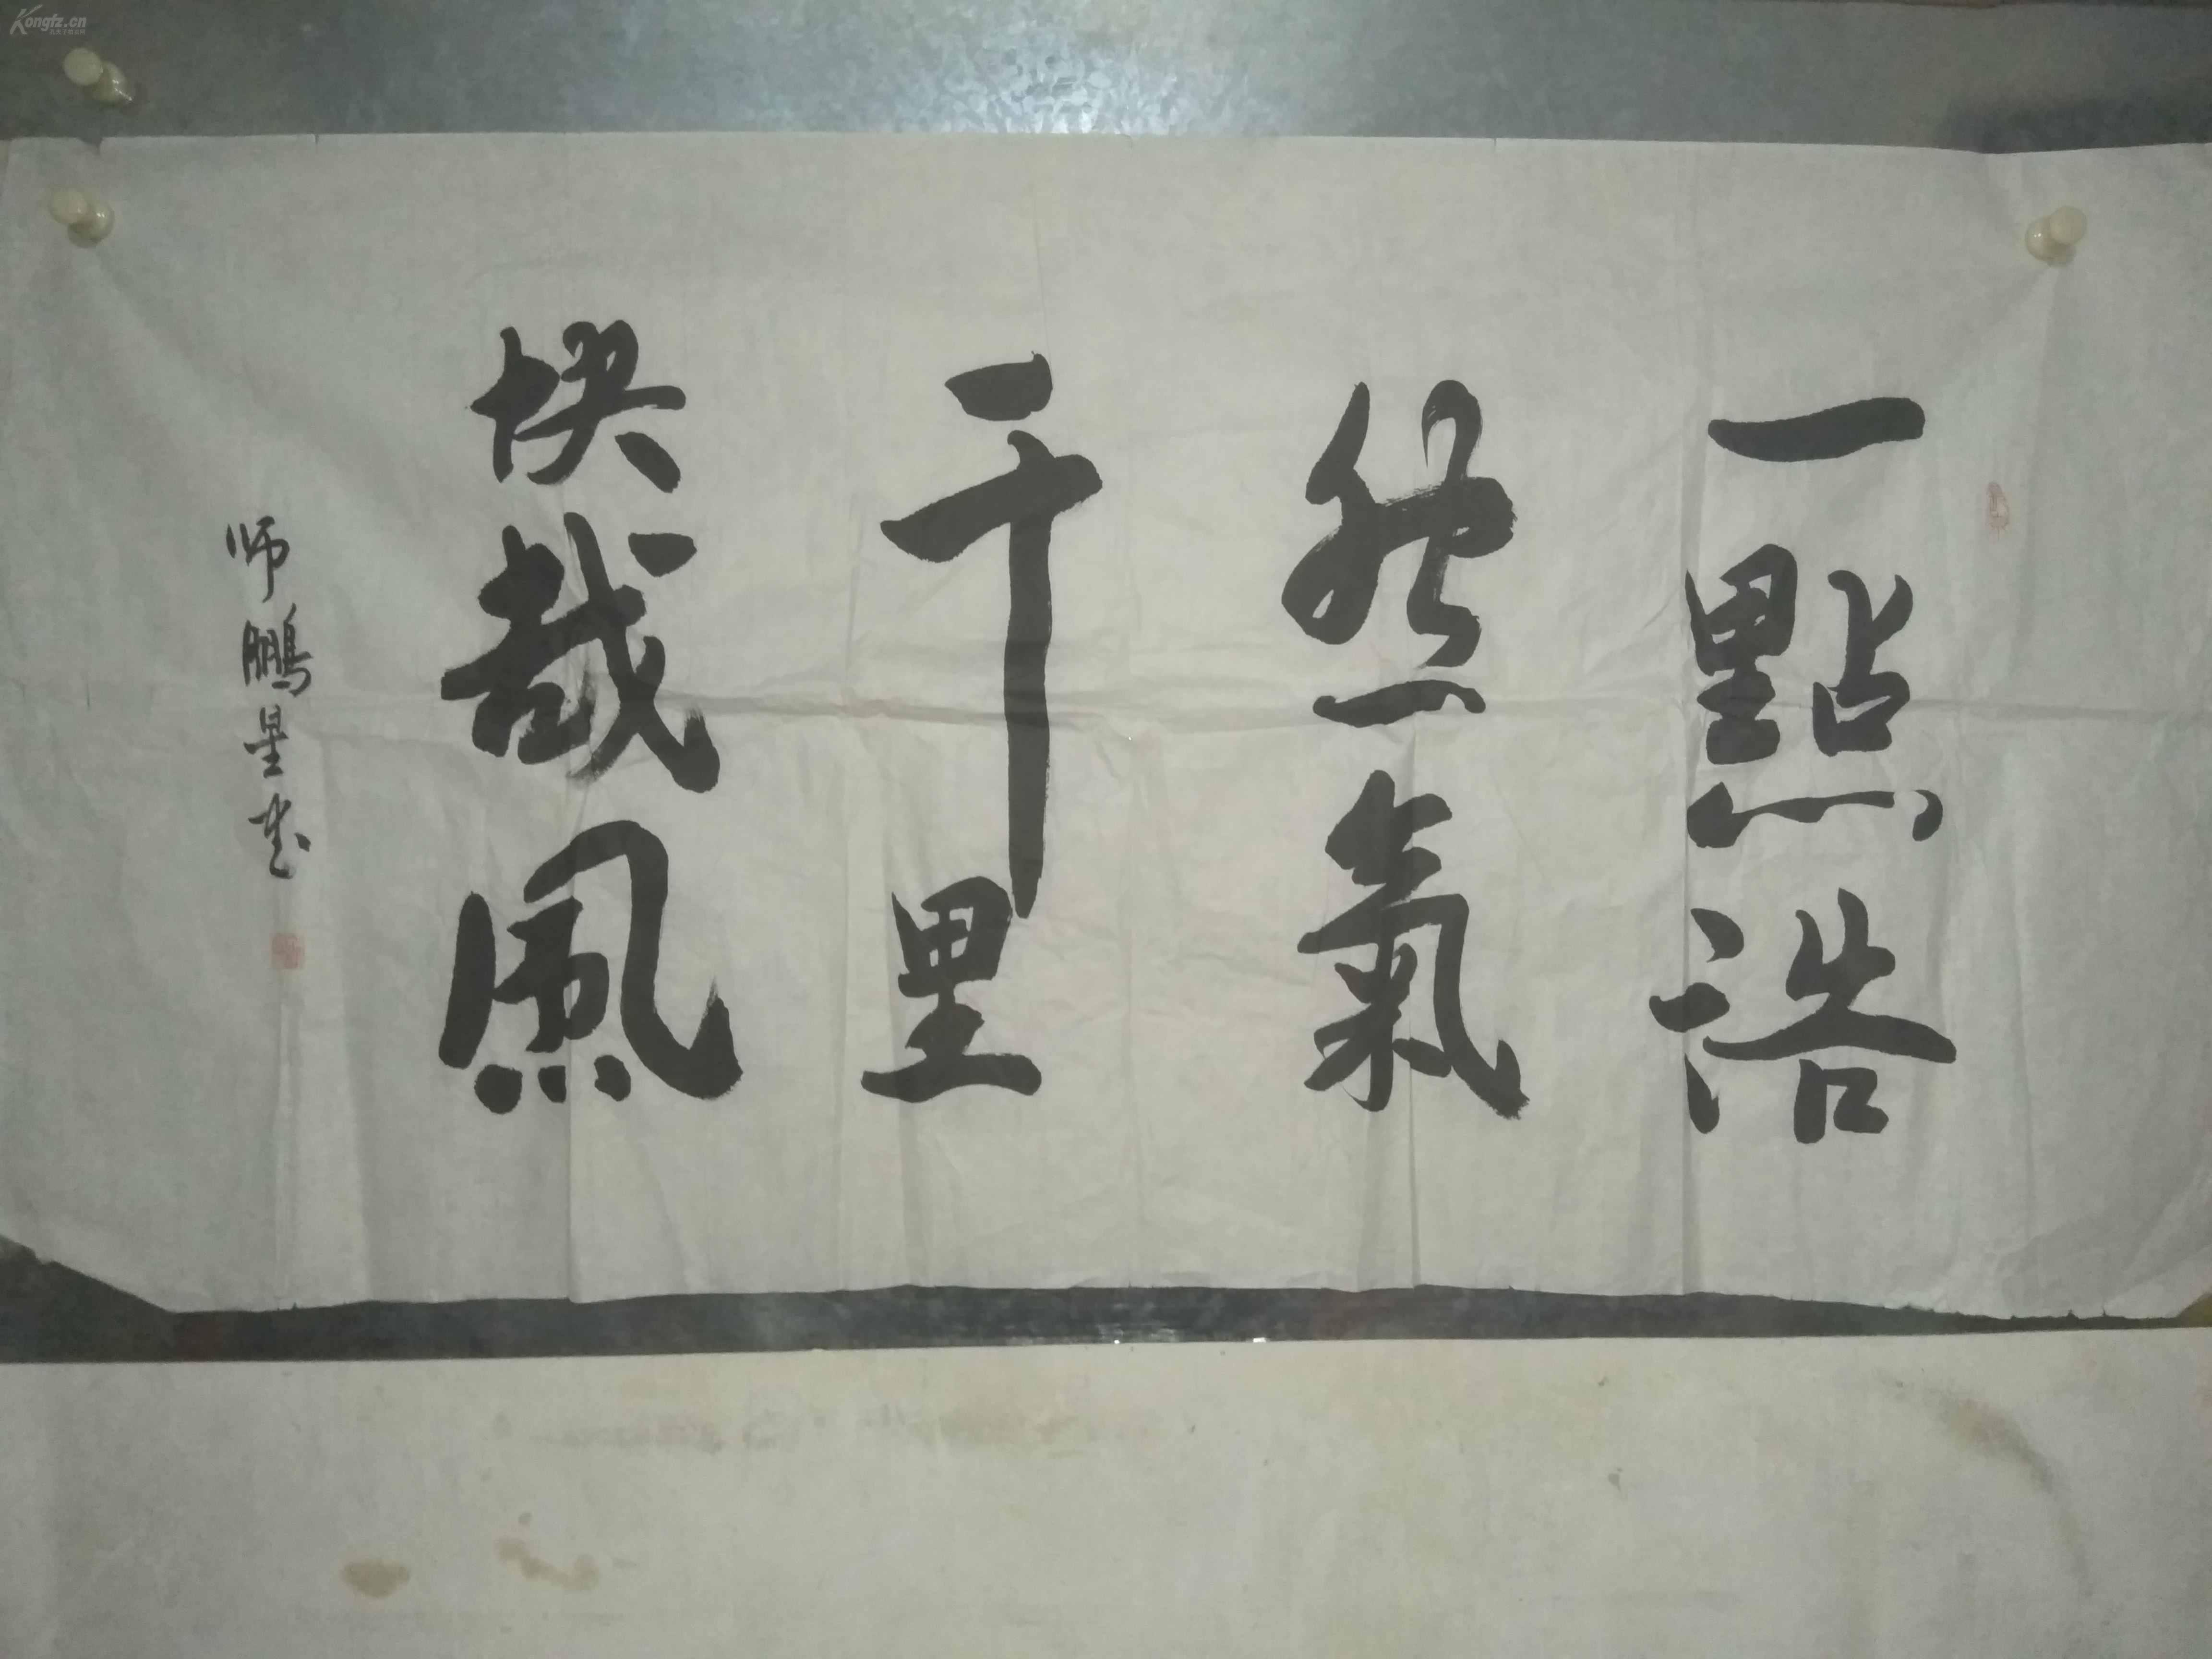 一點浩
然氣
千里
快哉風
师鵬星书
Kongfz.cn